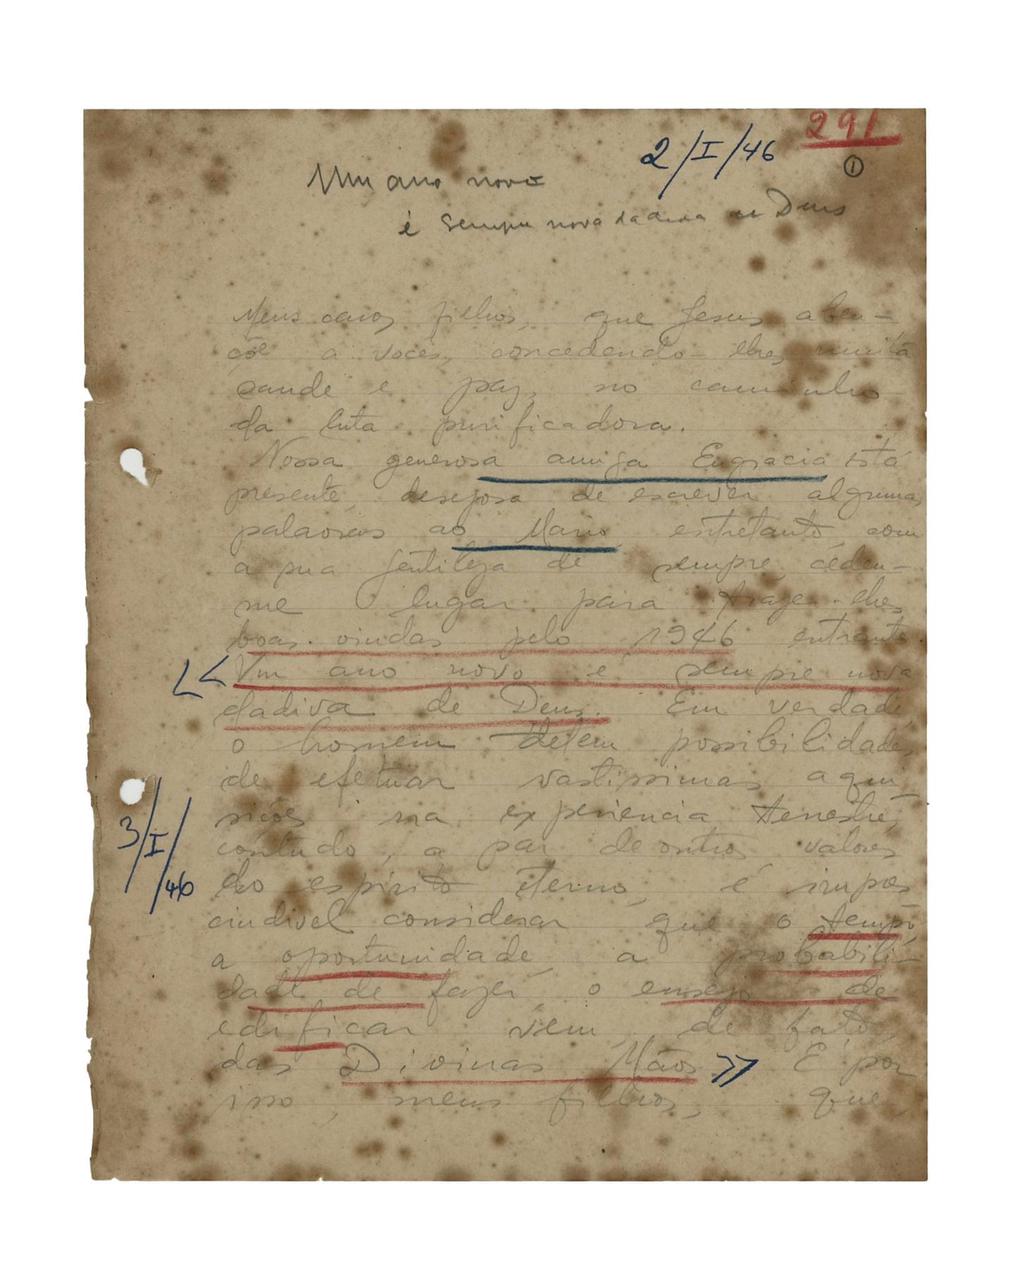 291
2/I/46
①
Um ano novo
é sempre nova dadiva de Deus
Meus caros filhos, que Jesus aben-
çôe a vocês, concedendo-lhes muita
saude e paz, no caminho
da luta purificadora.
Nossa generosa amiga Engracia está
presente, desejosa de escrever algumas
palavras ao Mario, entretanto, com
a sua gentileza de sempre, cedeu-
me o lugar para trazer-lhes
boas-vindas pelo 1946 entrante.
<< Um ano novo é sempre nova
dadiva de Deus. Em verdade,
o homem detem possibilidades
de efetuar vastissimas aqui-
sições na experiencia terrestre,
3/I/46
contudo, a par de outros valores
do espirito eterno, é impres-
cindivel considerar que o tempo,
a oportunidade, a probabili-
dade de fazer, o ensejo de
edificar vem, de fato,
das Divinas Mãos >> É por
isso, meus filhos, que,